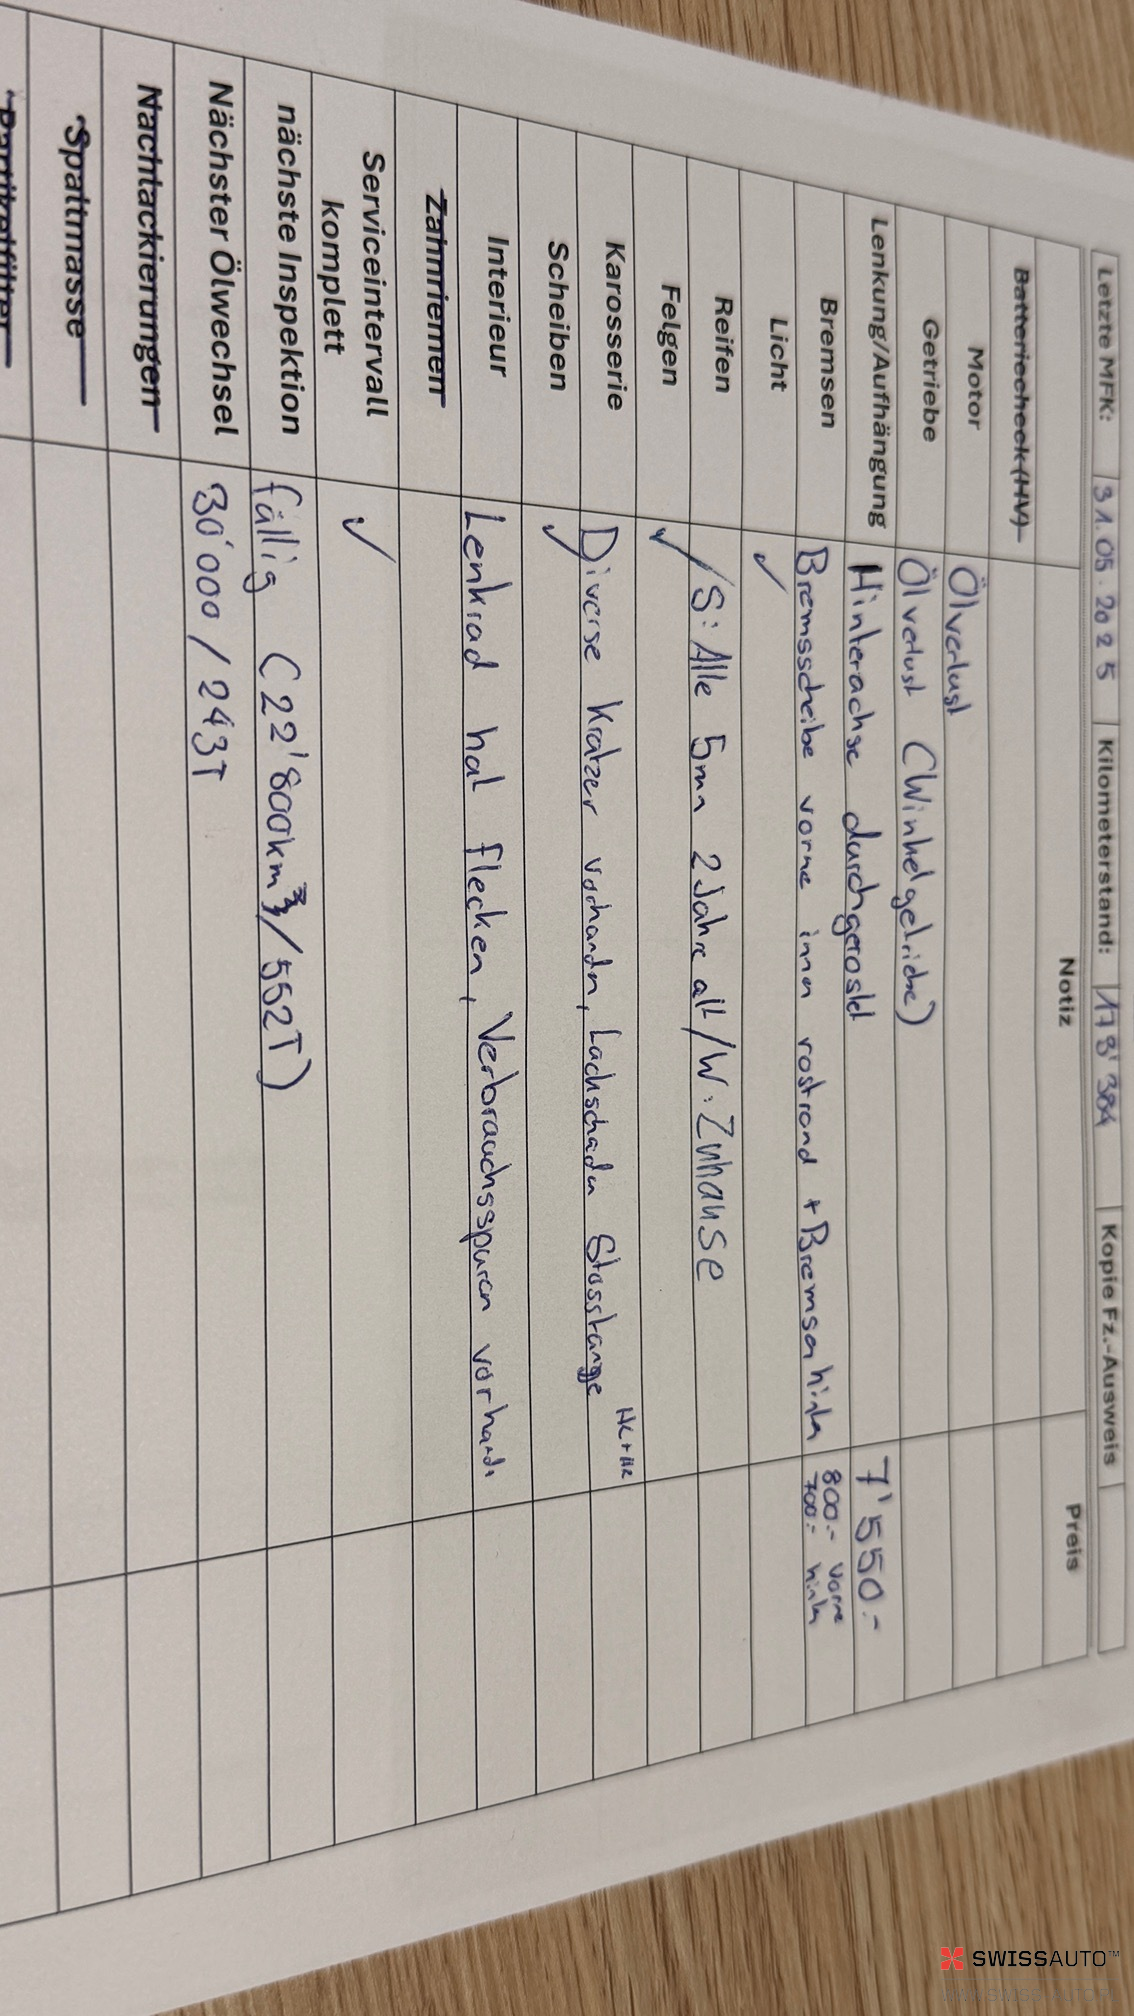 Letzte MFK: 31.05.2025 Kilometerstand: 178'384 Kopie Fz.-Ausweis
Notiz Preis
Batteriecheck (HV)
Motor Ölverlust
Getriebe Ölverlust (Winkelgetriebe)
Lenkung/Aufhängung Hinterachse durchgerostet 7'550.-
Bremsen Bremsscheibe vorne innen rostrand + Bremsen hinten 800.- vorne
700.- hinten
Licht ✓
Reifen S: Alle 5mm 2 Jahre alt / W: Zuhause
Felgen ✓
Karosserie Diverse Kratzer vorhanden, Lackschaden Stosstange HL+HR
Scheiben ✓
Interieur Lenkrad hat flecken, Verbrauchsspuren vorhanden
Zahnriemen
Serviceintervall
komplett ✓
nächste Inspektion fällig (22'800km / 552T)
Nächster Ölwechsel 30'000 / 243T
Nachlackierungen
Spaltmasse
Partikelfilter
SWISSAUTO™